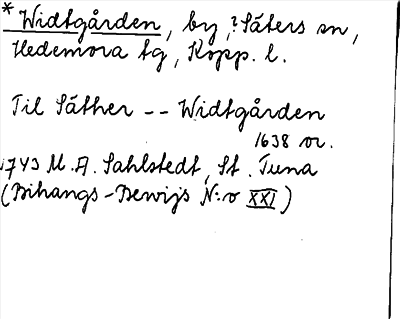 * Widtgården, by, ? Säters sn,
Hedemora tg, Kopp. l.
Til Säther -- Widtgården
1638 or.
1743 M. A. Sahlstedt, St. Tuna
(Bihangs-Bewijs N:o XXI)